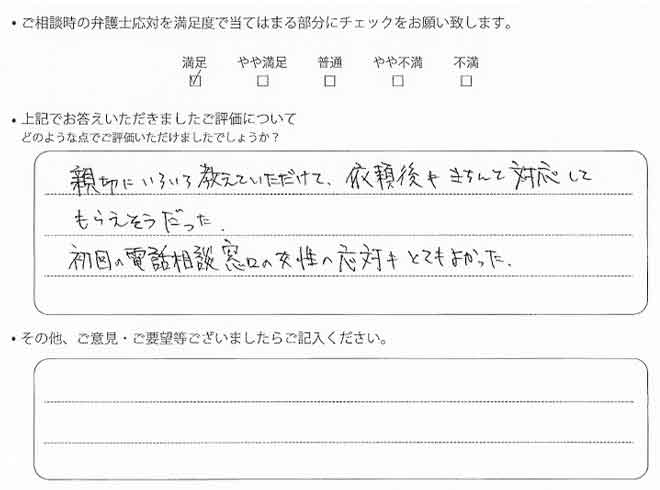 ・ご相談時の弁護士応対を満足度で当てはまる部分にチェックをお願い致します。
満足 やや満足 普通 やや不満 不満
☑ □ □ □ □
・上記でお答えいただきましたご評価について
どのような点でご評価いただけましたでしょうか？
親切にいろいろ教えていただけて、依頼後もきちんと対応して
もらえそうだった。
初回の電話相談窓口の女性の応対もとてもよかった。
・その他、ご意見・ご要望等ございましたらご記入ください。